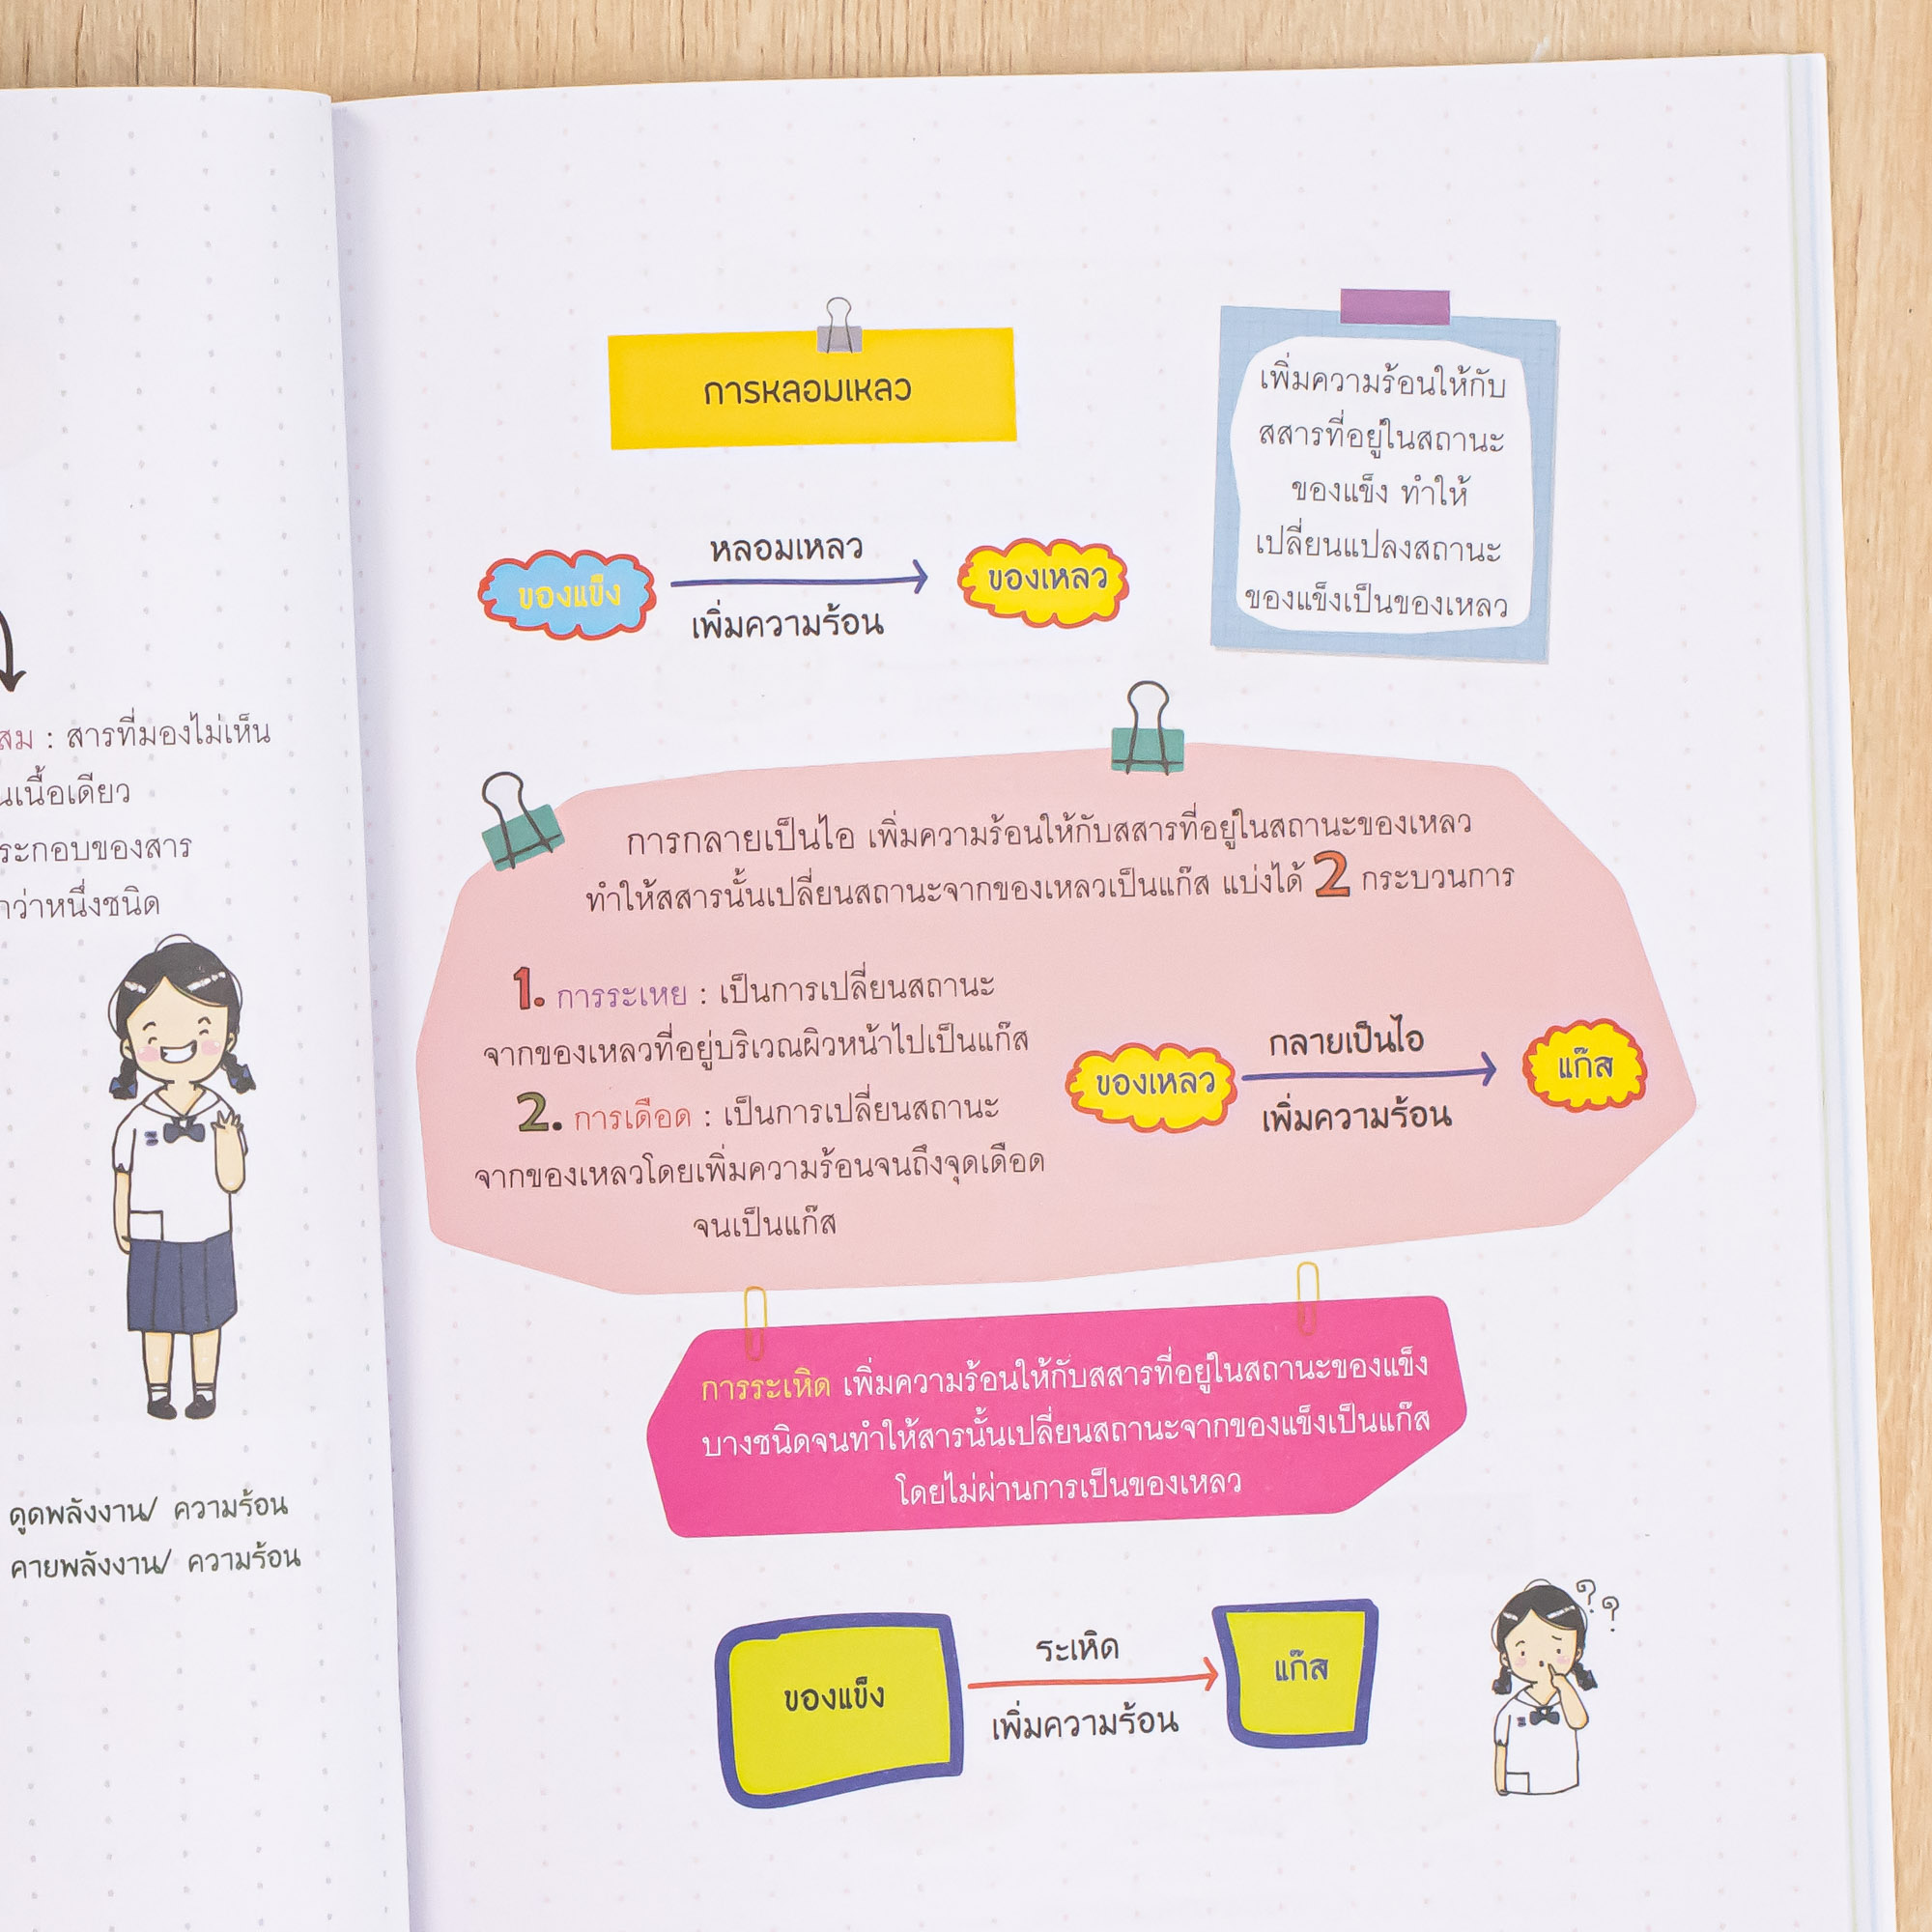 สม : สารที่มองไม่เห็น
นเนื้อเดียว
ระกอบของสาร
กว่าหนึ่งชนิด
ดูดพลังงาน/ ความร้อน
คายพลังงาน/ ความร้อน
การหลอมเหลว
เพิ่มความร้อนให้กับ
สสารที่อยู่ในสถานะ
ของแข็ง ทำให้
เปลี่ยนแปลงสถานะ
ของแข็งเป็นของเหลว
หลอมเหลว
ของแข็ง
ของเหลว
เพิ่มความร้อน
การกลายเป็นไอ เพิ่มความร้อนให้กับสสารที่อยู่ในสถานะของเหลว
ทำให้สสารนั้นเปลี่ยนสถานะจากของเหลวเป็นแก๊ส แบ่งได้ 2 กระบวนการ
1. การระเหย : เป็นการเปลี่ยนสถานะ
จากของเหลวที่อยู่บริเวณผิวหน้าไปเป็นแก๊ส
2. การเดือด : เป็นการเปลี่ยนสถานะ
จากของเหลวโดยเพิ่มความร้อนจนถึงจุดเดือด
จนเป็นแก๊ส
กลายเป็นไอ
ของเหลว
แก๊ส
เพิ่มความร้อน
การระเหิด เพิ่มความร้อนให้กับสสารที่อยู่ในสถานะของแข็ง
บางชนิดจนทำให้สารนั้นเปลี่ยนสถานะจากของแข็งเป็นแก๊ส
โดยไม่ผ่านการเป็นของเหลว
ระเหิด
ของแข็ง
แก๊ส
เพิ่มความร้อน
? ?